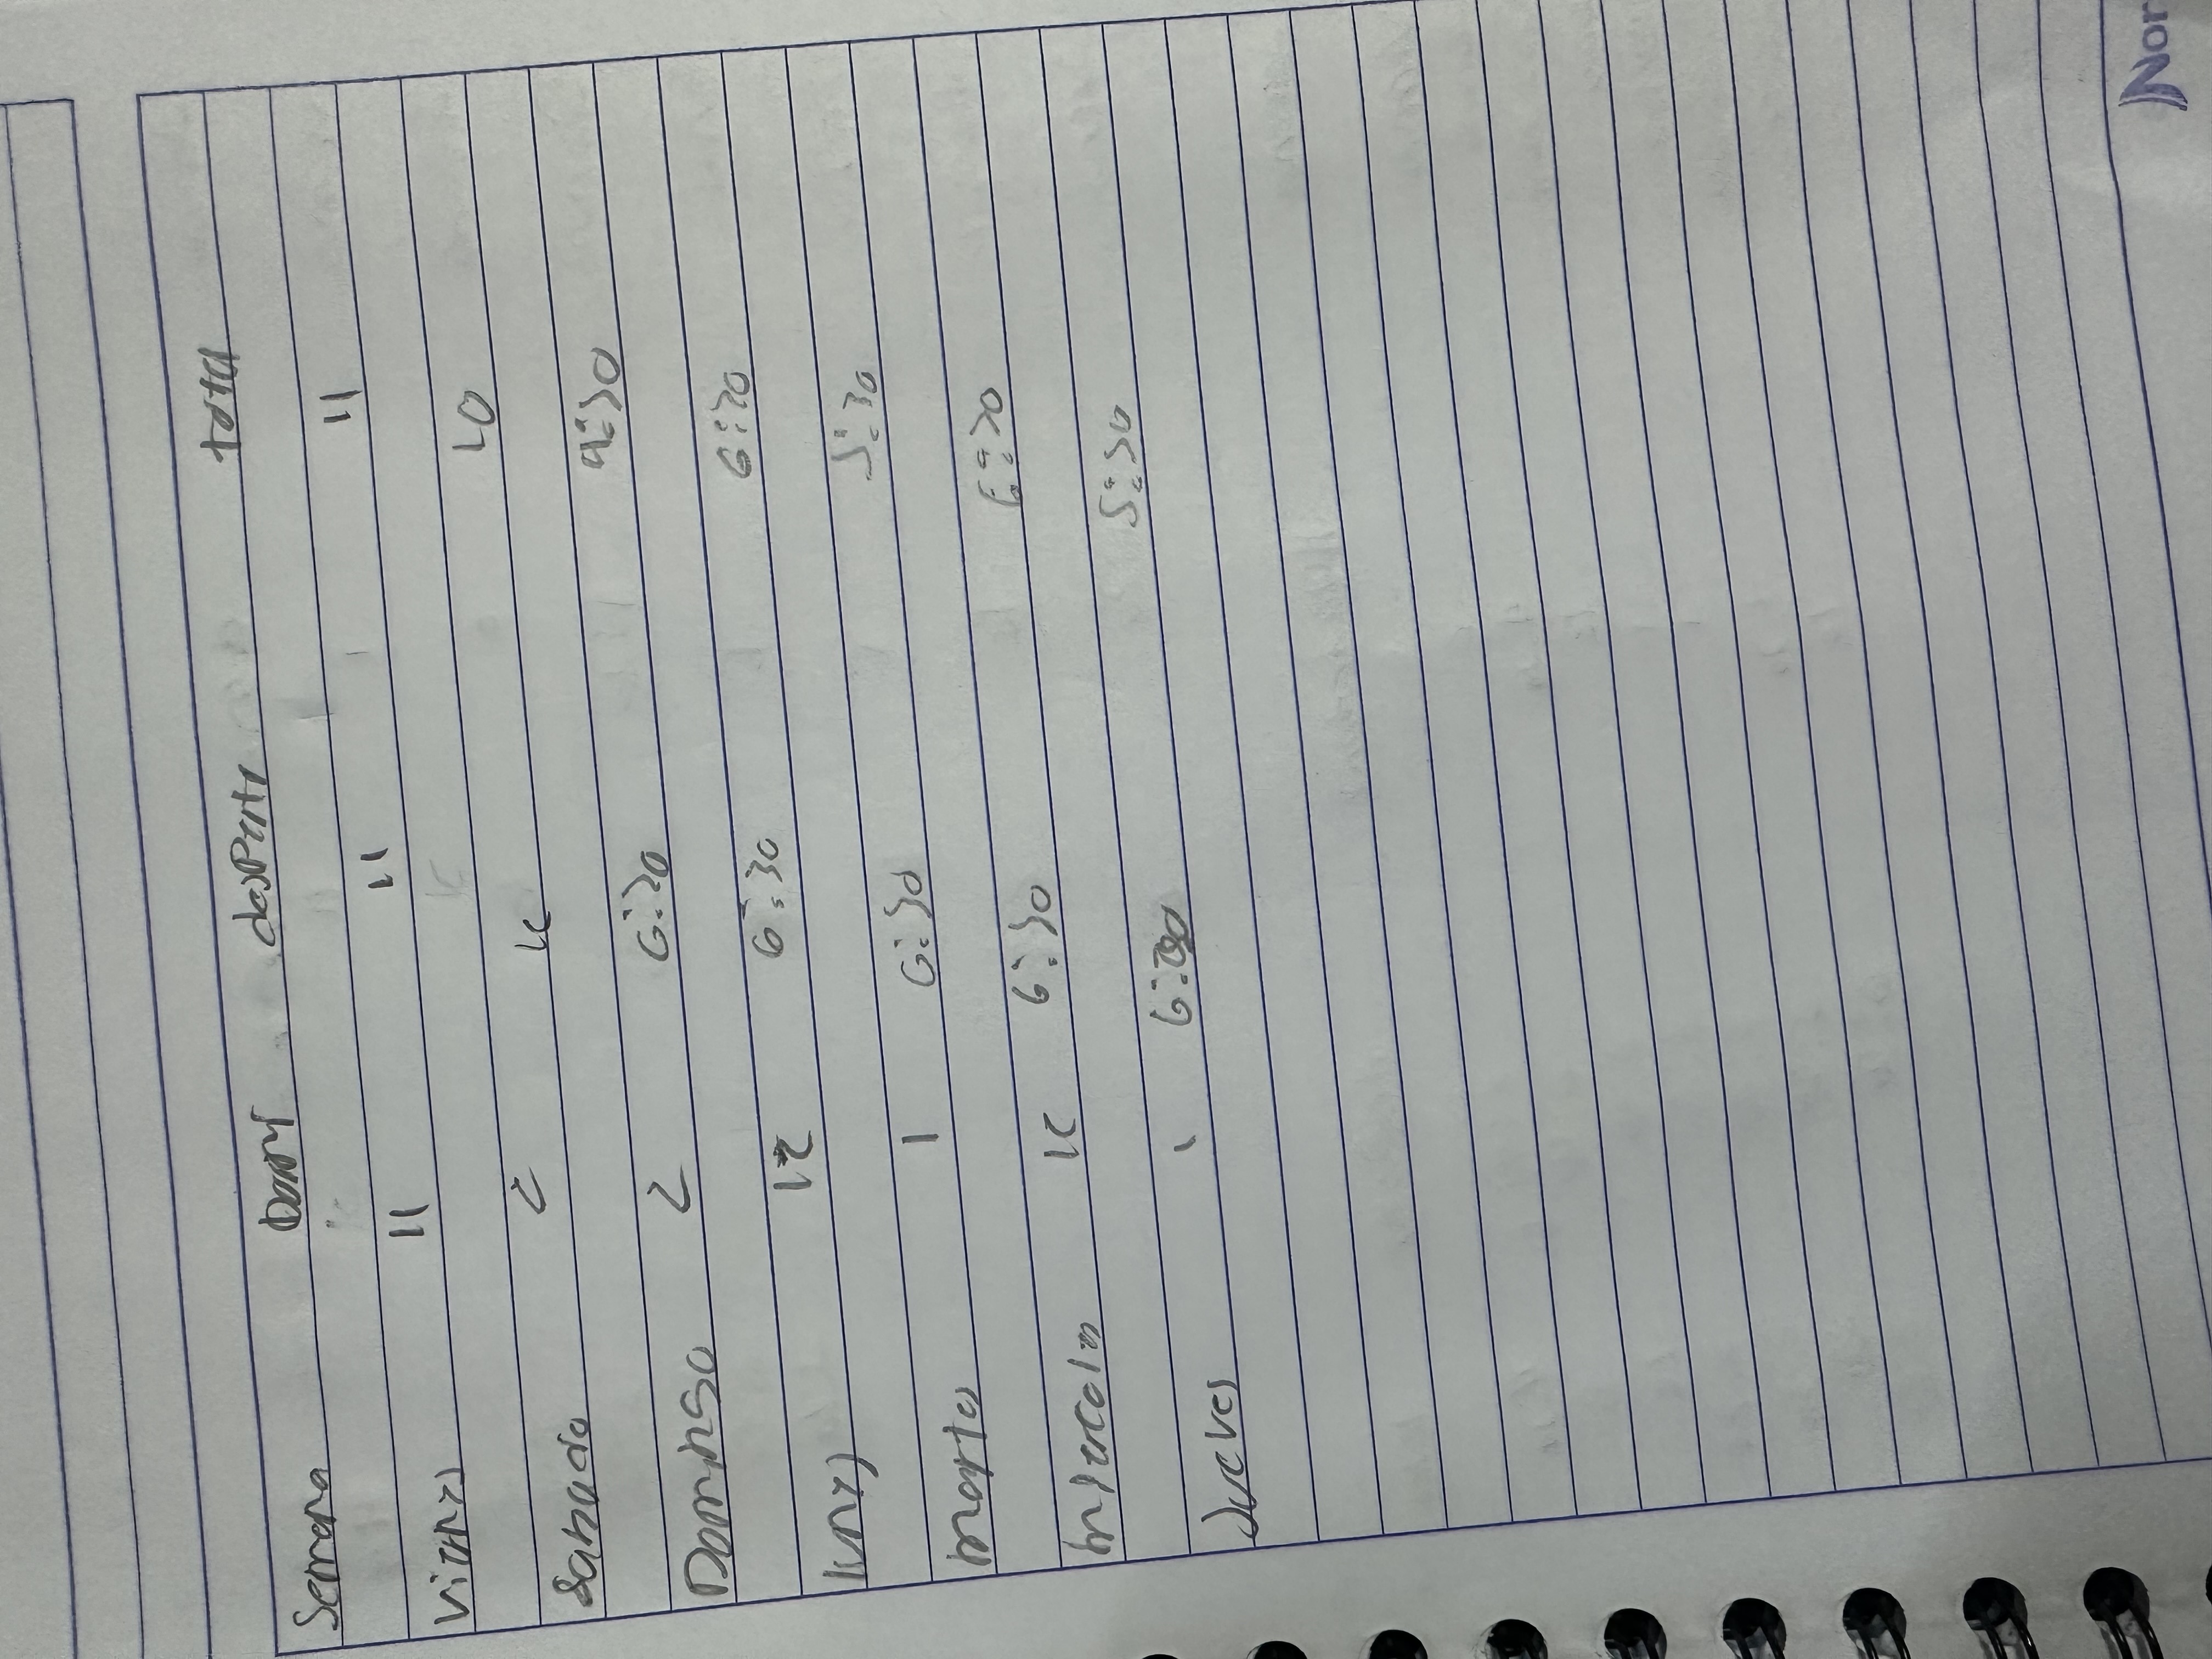 Semana dormi desperti total
Viernes 11 11 11
Sabado 2 12 10
Domingo 2 6:30 4:30
lunes 12 6:30 6:30
martes 1 6:30 5:30
miercoles 12 6:30 6:30
Jueves 1 5:30
Nor